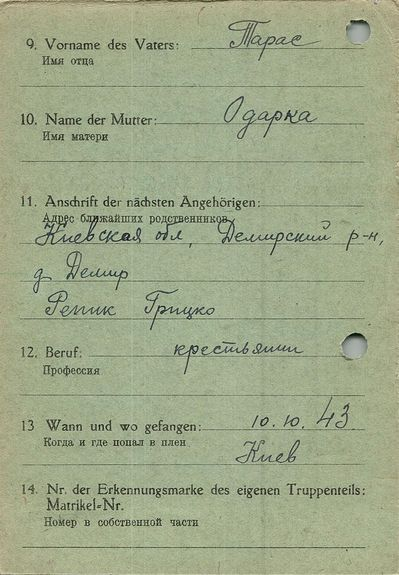 9. Vorname des Vaters: Тарас
Имя отца
10. Name der Mutter: Одарка
Имя матери
11. Anschrift der nächsten Angehörigen:
Адрес ближайших родственников
Киевская обл, Демирский р-н,
д Демир
Репик Грицко
12. Beruf: крестьянин
Профессия
13 Wann und wo gefangen: 10.10.43
Когда и где попал в плен
Киев
14. Nr. der Erkennungsmarke des eigenen Truppenteils:
Matrikel=Nr.
Номер в собственной части